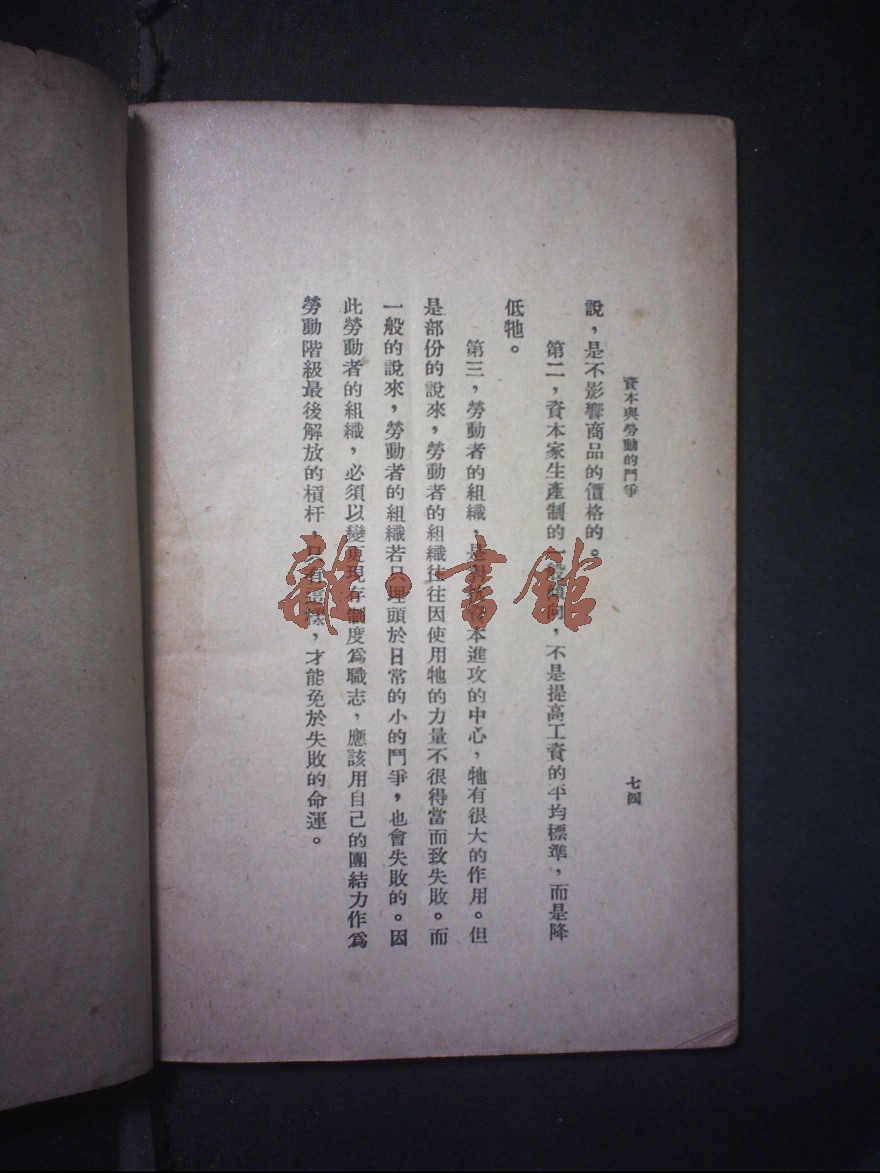 資本與勞動的鬥爭
七四
說，是不影響商品的價格的。
第二，資本家生產制的一般傾向，不是提高工資的平均標準，而是降
低牠。
第三，勞動者的組織，是對抗資本進攻的中心，牠有很大的作用。但
是部份的說來，勞動者的組織往往因使用牠的力量不很得當而致失敗。而
一般的說來，勞動者的組織若只埋頭於日常的小的鬥爭，也會失敗的。因
此勞動者的組織，必須以變更現存制度爲職志，應該用自己的團結力作爲
勞動階級最後解放的槓杆，只有這樣，才能免於失敗的命運。
雜·書館